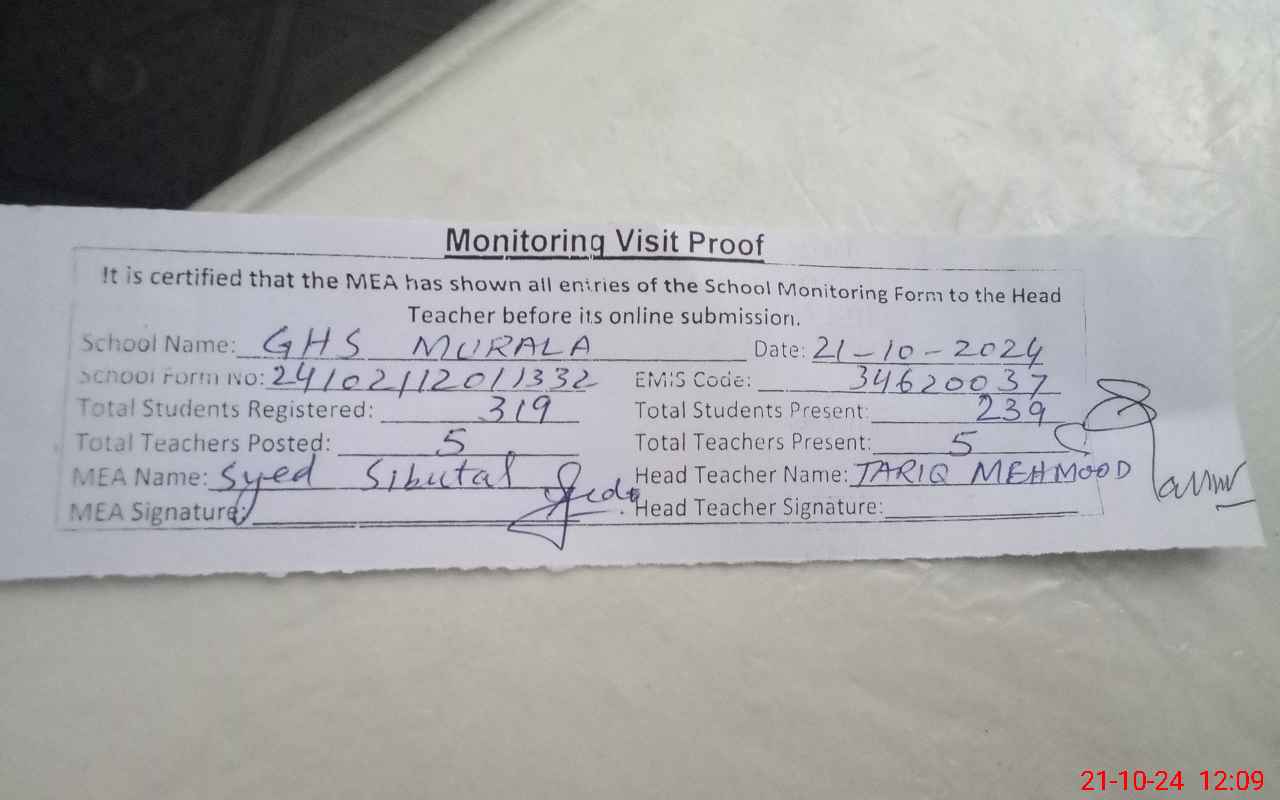 Monitoring Visit Proof
It is certified that the MEA has shown all entries of the School Monitoring Form to the Head
Teacher before its online submission.
School Name: GHS MURALA Date: 21-10-2024
School Form No: 24102112011332 EMIS Code: 34620037
Total Students Registered: 319 Total Students Present: 239
Total Teachers Posted: 5 Total Teachers Present: 5
MEA Name: Syed Sibutal Head Teacher Name: TARIQ MEHMOOD
MEA Signature: Head Teacher Signature:
21-10-24 12:09